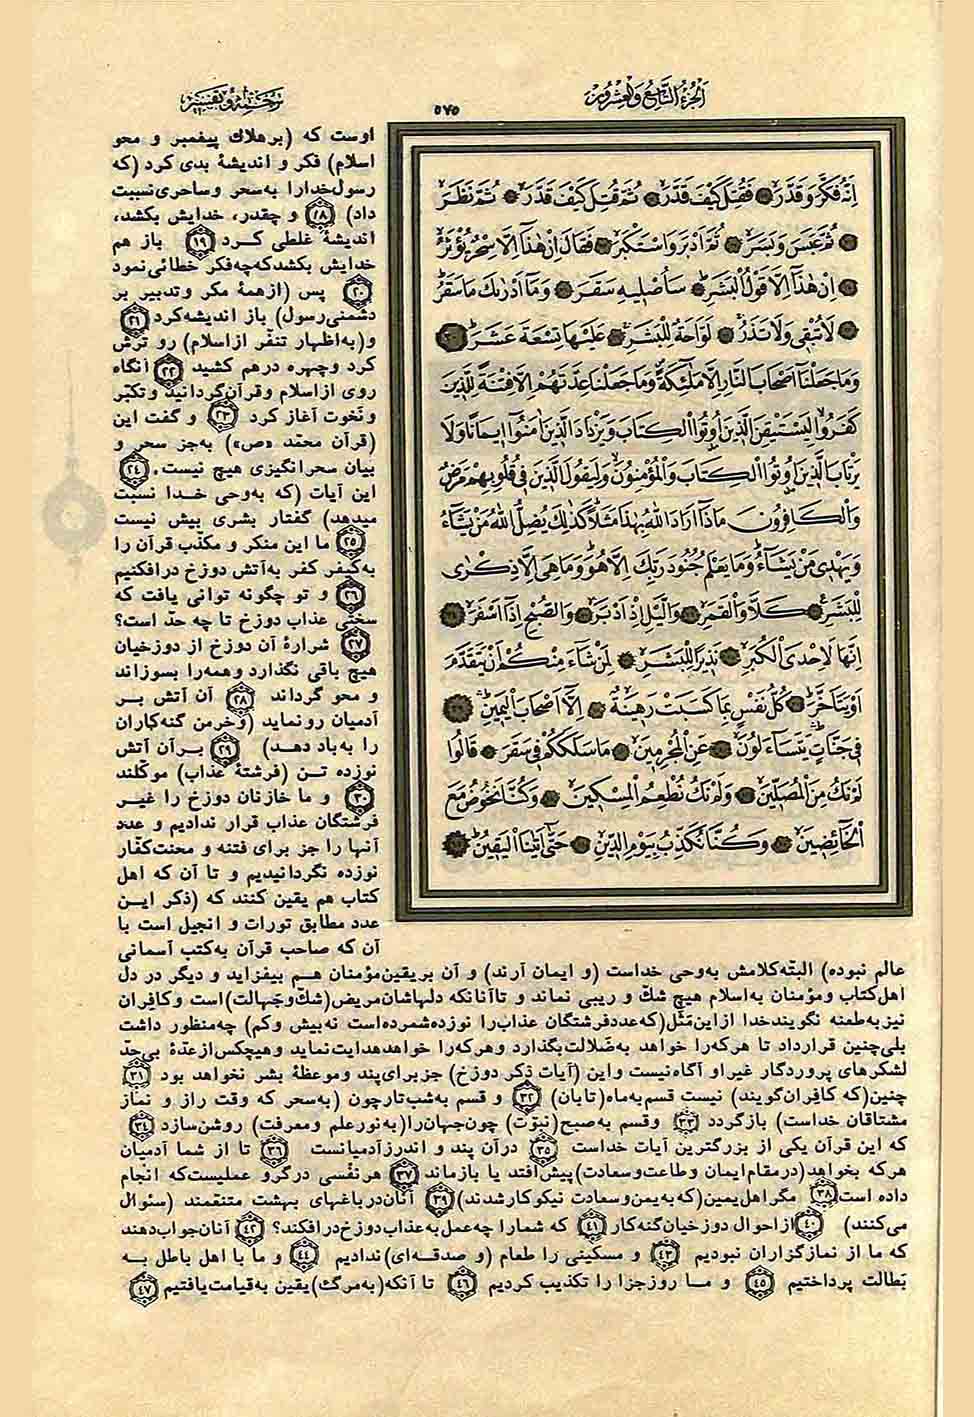 الجزء التاسع والعشرون
۵۷۵
ترجمه و تفسیر
اِنَّهُ فَكَّرَ وَ قَدَّرَ فَقُتِلَ كَيْفَ قَدَّرَ ثُمَّ قُتِلَ كَيْفَ قَدَّرَ ثُمَّ نَظَرَ
ثُمَّ عَبَسَ وَ بَسَرَ ثُمَّ اَدْبَرَ وَاسْتَكْبَرَ فَقالَ اِنْ هٰذا اِلّا سِحْرٌ يُؤْثَرُ
اِنْ هٰذا اِلّا قَوْلُ الْبَشَرِ سَاُصْليهِ سَقَرَ وَما اَدْريٰكَ ما سَقَرُ
لا تُبْقي وَلا تَذَرُ لَوّاحَةٌ لِلْبَشَرِ عَلَيْها تِسْعَةَ عَشَرَ
وَما جَعَلْنا اَصْحابَ النّارِ اِلّا مَلٰئِكَةً وَما جَعَلْنا عِدَّتَهُمْ اِلّا فِتْنَةً لِلَّذينَ
كَفَرُوا لِيَسْتَيْقِنَ الَّذينَ اُوتُوا الْكِتابَ وَيَزْدادَ الَّذينَ اٰمَنُوا ايمانًا وَلا
يَرْتابَ الَّذينَ اُوتُوا الْكِتابَ وَالْمُؤْمِنُونَ وَلِيَقُولَ الَّذينَ في قُلُوبِهِمْ مَرَضٌ
وَالْكافِرُونَ ماذا اَرادَ اللّٰهُ بِهٰذا مَثَلًا كَذٰلِكَ يُضِلُّ اللّٰهُ مَنْ يَشاءُ
وَيَهْدي مَنْ يَشاءُ وَما يَعْلَمُ جُنُودَ رَبِّكَ اِلّا هُوَ وَما هِيَ اِلّا ذِكْرٰى
لِلْبَشَرِ كَلّا وَالْقَمَرِ وَالَّيْلِ اِذْ اَدْبَرَ وَالصُّبْحِ اِذا اَسْفَرَ
اِنَّها لَاِحْدَى الْكُبَرِ نَذيرًا لِلْبَشَرِ لِمَنْ شاءَ مِنْكُمْ اَنْ يَتَقَدَّمَ
اَوْ يَتَاَخَّرَ كُلُّ نَفْسٍ بِما كَسَبَتْ رَهينَةٌ اِلّا اَصْحابَ الْيَمينِ
في جَنّاتٍ يَتَساءَلُونَ عَنِ الْمُجْرِمينَ ما سَلَكَكُمْ في سَقَرَ قالُوا
لَمْ نَكُ مِنَ الْمُصَلّينَ وَلَمْ نَكُ نُطْعِمُ الْمِسْكينَ وَكُنّا نَخُوضُ مَعَ
الْخائِضينَ وَكُنّا نُكَذِّبُ بِيَوْمِ الدّينِ حَتّٰى اَتٰينَا الْيَقينُ
اوست که (بر هلاك پیغمبر و محو
اسلام) فکر و اندیشهٔ بدی کرد (که
رسول خدا را به سحر و ساحری نسبت
داد) ۱۸ و چقدر، خدایش بکشد،
اندیشهٔ غلطی کرد ۱۹ باز هم
خدایش بکشد که چه فکر خطائی نمود
۲۰ پس (از همهٔ مکر و تدبیر بر
دشمنی رسول) باز اندیشه کرد ۲۱
و (به اظهار تنفّر از اسلام) رو ترش
کرد و چهره درهم کشید ۲۲ آنگاه
روی از اسلام و قرآن گردانید و تکبّر
و نخوت آغاز کرد ۲۳ و گفت این
(قرآن محمّد «ص») به جز سحر و
بیان سحرانگیزی هیچ نیست. ۲۴
این آیات (که به وحی خدا نسبت
میدهد) گفتار بشری بیش نیست
۲۵ ما این منکر و مکذّب قرآن را
به کیفر کفر به آتش دوزخ درافکنیم
۲۶ و تو چگونه توانی یافت که
سختی عذاب دوزخ تا چه حدّ است؟
۲۷ شرارهٔ آن دوزخ از دوزخیان
هیچ باقی نگذارد و همه را بسوزاند
و محو گرداند ۲۸ آن آتش بر
آدمیان رو نماید (و خرمن گنه کاران
را به باد دهد) ۲۹ بر آن آتش
نوزده تن (فرشتهٔ عذاب) موکّلند
۳۰ و ما خازنان دوزخ را غیر
فرشتگان عذاب قرار ندادیم و عدد
آنها را جز برای فتنه و محنت کفّار
نوزده نگردانیدیم و تا آن که اهل
کتاب هم یقین کنند که (ذکر این
عدد مطابق تورات و انجیل است با
آن که صاحب قرآن به کتب آسمانی
عالم نبوده) البتّه کلامش به وحی خداست (و ایمان آرند) و آن بر یقین مؤمنان هم بیفزاید و دیگر در دل
اهل کتاب و مؤمنان به اسلام هیچ شكّ و ریبی نماند و تا آنانکه دلهاشان مریض (شكّ و جهالت) است و کافران
نیز به طعنه نگویند خدا از این مثل (که عدد فرشتگان عذاب را نوزده شمرده است نه بیش و کم) چه منظور داشت
بلی چنین قرار داد تا هر که را خواهد به ضلالت بگذارد و هر که را خواهد هدایت نماید و هیچکس از عدّهٔ بی حدّ
لشکرهای پروردگار غیر او آگاه نیست و این (آیات ذکر دوزخ) جز برای پند و موعظهٔ بشر نخواهد بود ۳۱
چنین (که کافران گویند) نیست قسم به ماه (تابان) ۳۲ و قسم به شب تار چون (به سحر که وقت راز و نماز
مشتاقان خداست) بازگردد ۳۳ وقسم به صبح (نبوّت) چون جهان را (به نور علم و معرفت) روشن سازد ۳۴
که این قرآن یکی از بزرگترین آیات خداست ۳۵ در آن پند و اندرز آدمیانست ۳۶ تا از شما آدمیان
هر که بخواهد (در مقام ایمان و طاعت و سعادت) پیش افتد یا بازماند ۳۷ هر نفسی در گرو عملیست که انجام
داده است ۳۸ مگر اهل یمین (که به یمن و سعادت نیکوکار شدند) ۳۹ آنان در باغهای بهشت متنعّمند (سئوال
می کنند) ۴۰ از احوال دوزخیان گنه کار ۴۱ که شما را چه عمل به عذاب دوزخ درافکند؟ ۴۲ آنان جواب دهند
که ما از نمازگزاران نبودیم ۴۳ و مسکینی را طعام (و صدقه ای) ندادیم ۴۴ و ما با اهل باطل به
بَطالت پرداختیم ۴۵ و ما روز جزا را تکذیب کردیم ۴۶ تا آنکه (به مرگ) یقین به قیامت یافتیم ۴۷